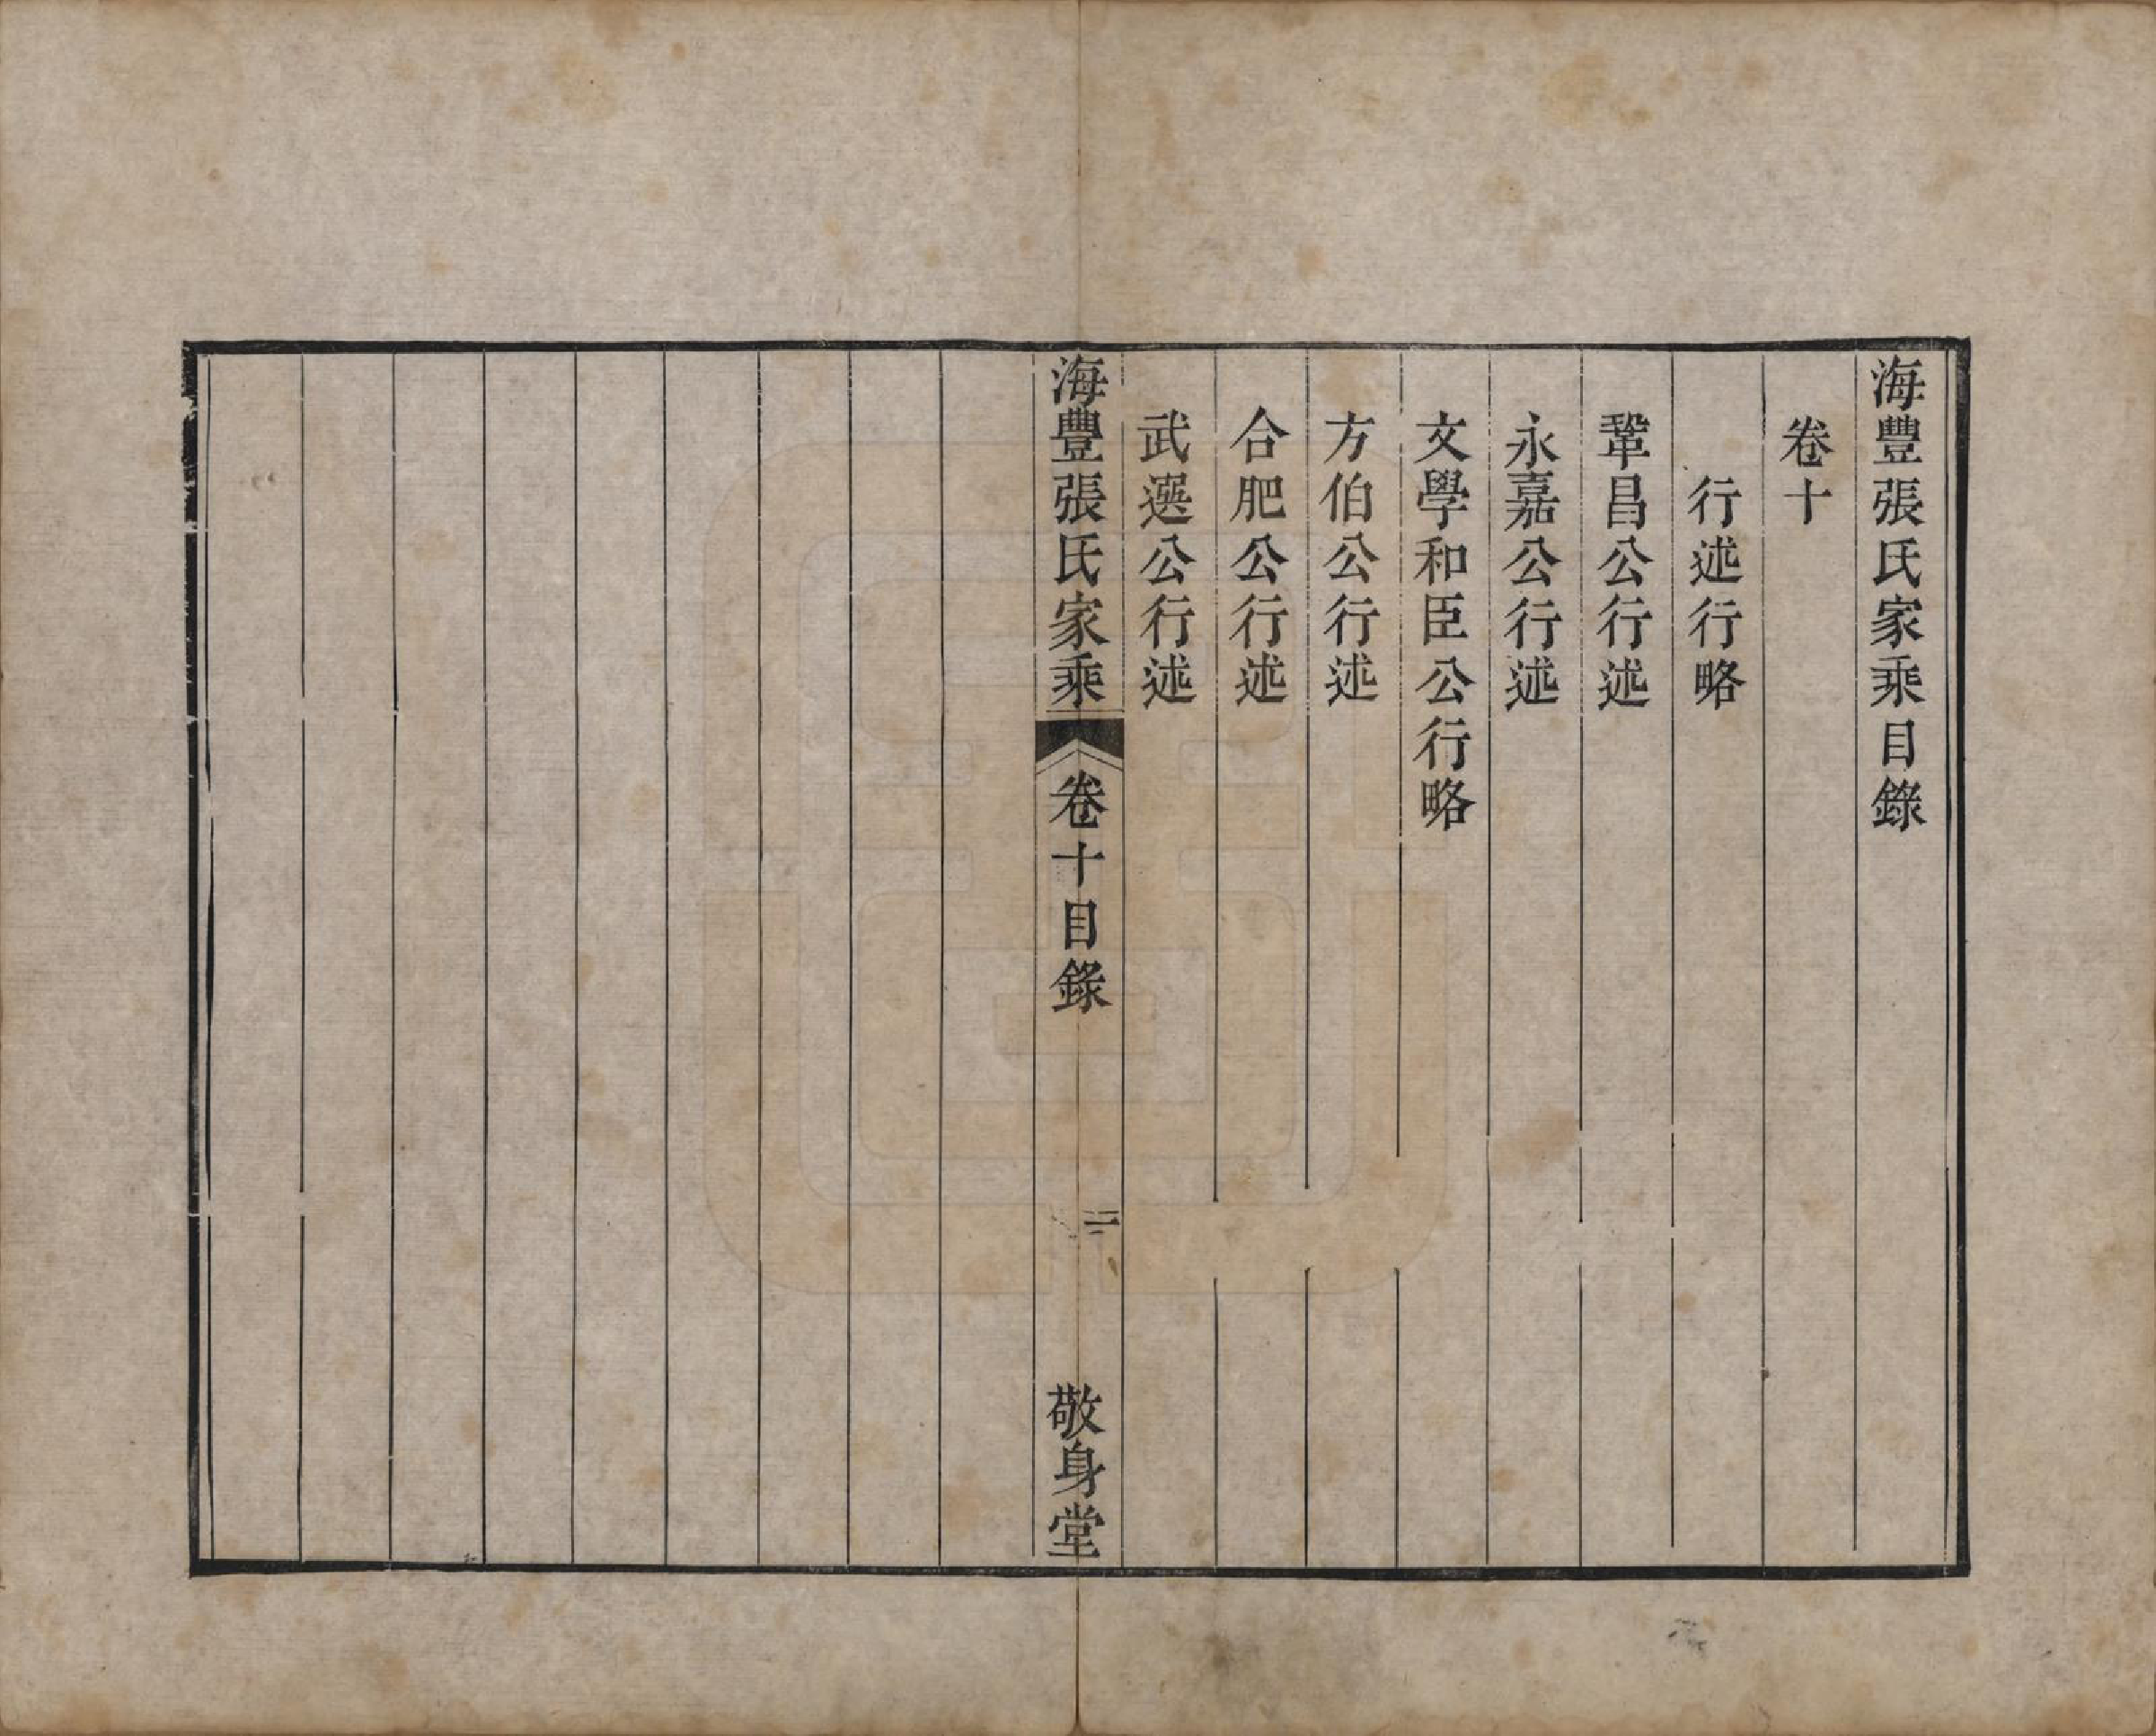 海豐張氏家乘目錄
卷十
行述行略
鞏昌公行述
永嘉公行述
文學和臣公行略
方伯公行述
合肥公行述
武選公行述
海豐張氏家乘
卷十目錄
敬身堂